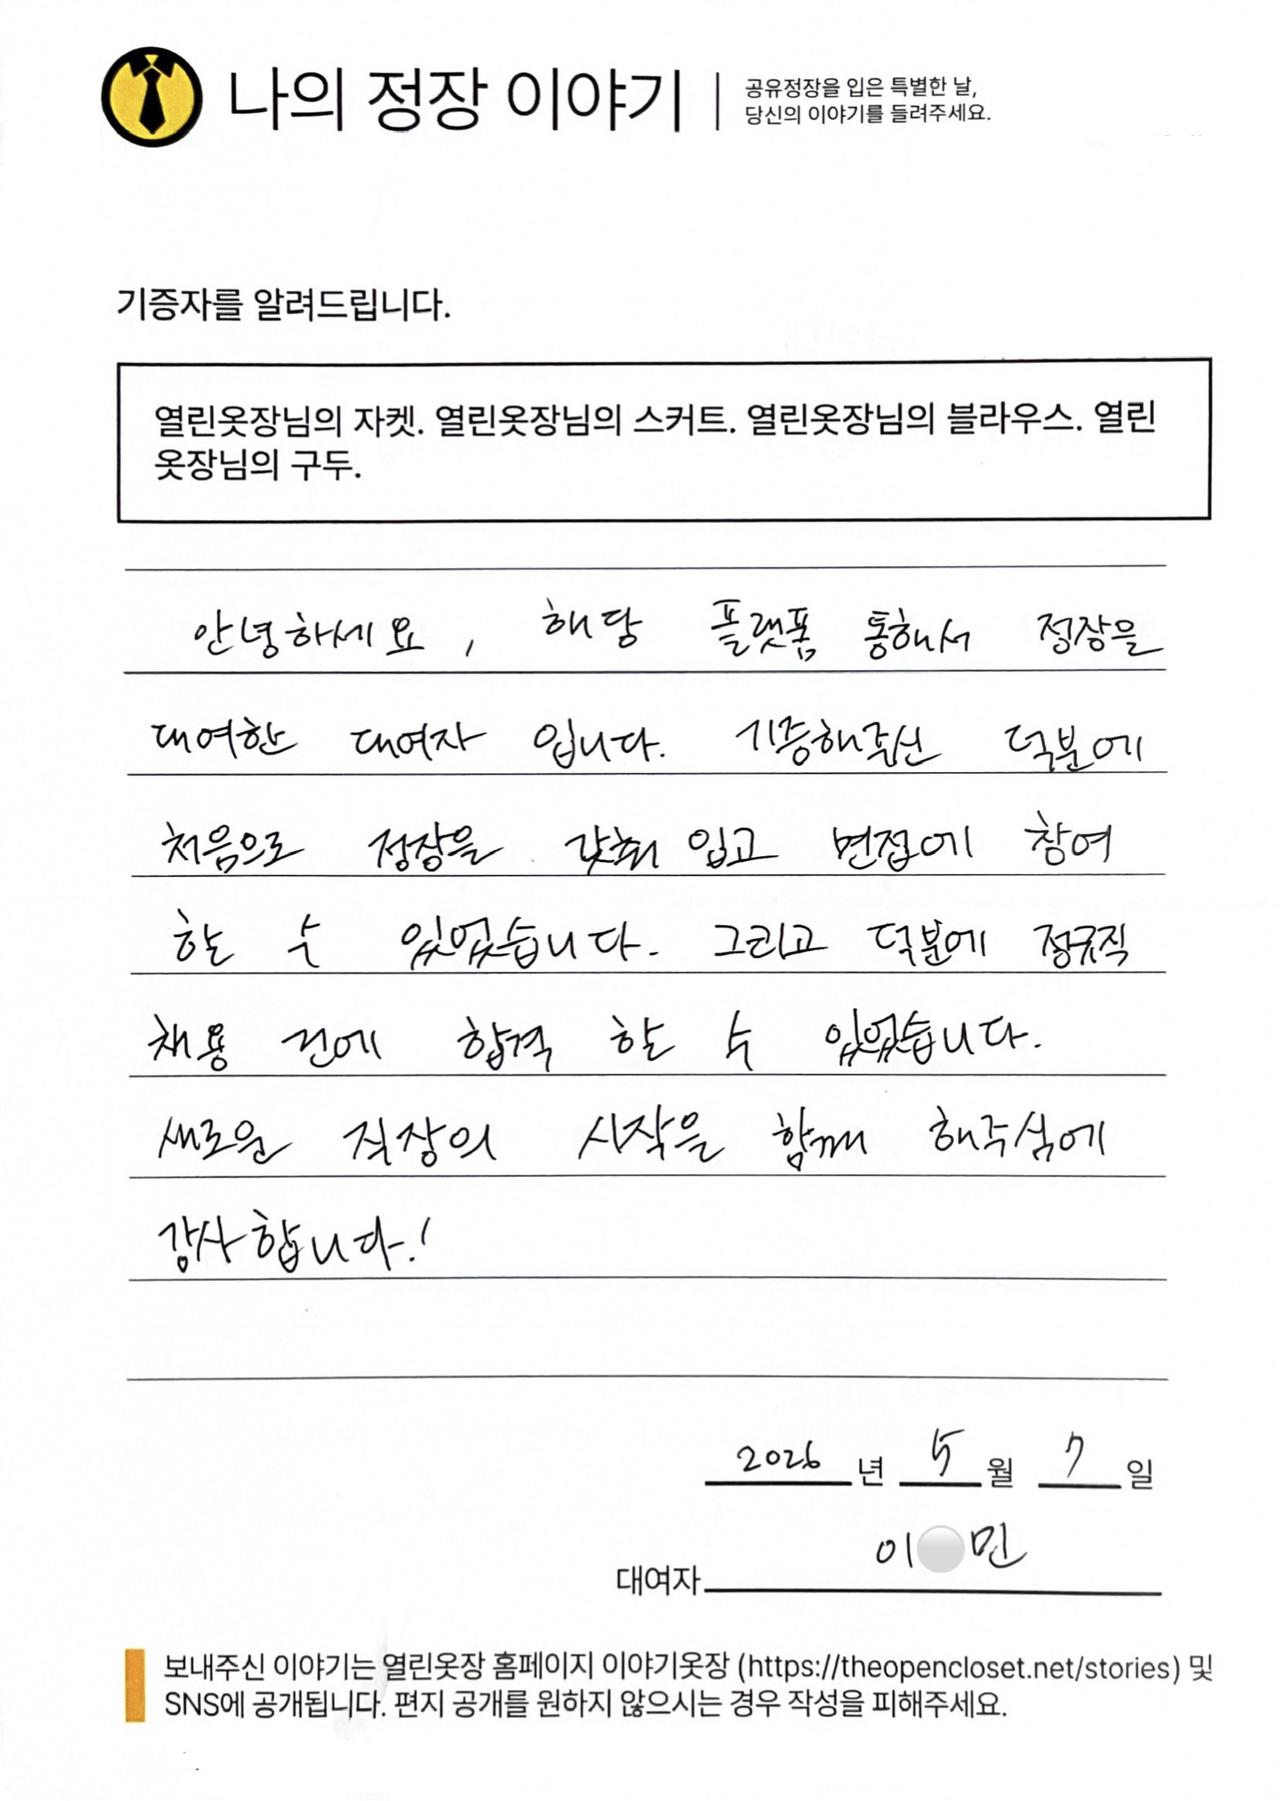 나의 정장 이야기
공유정장을 입은 특별한 날,
당신의 이야기를 들려주세요.
기증자를 알려드립니다.
열린옷장님의 자켓. 열린옷장님의 스커트. 열린옷장님의 블라우스. 열린
옷장님의 구두.
안녕하세요, 해당 플랫폼 통해서 정장을
대여한 대여자 입니다. 기증해주신 덕분에
처음으로 정장을 갖춰 입고 면접에 참여
할 수 있었습니다. 그리고 덕분에 정규직
채용 건에 합격 할 수 있었습니다.
새로운 직장의 시작을 함께 해주심에
감사합니다.!
2026년 5월 7일
이 민
대여자
보내주신 이야기는 열린옷장 홈페이지 이야기옷장 (https://theopencloset.net/stories) 및
SNS에 공개됩니다. 편지 공개를 원하지 않으시는 경우 작성을 피해주세요.